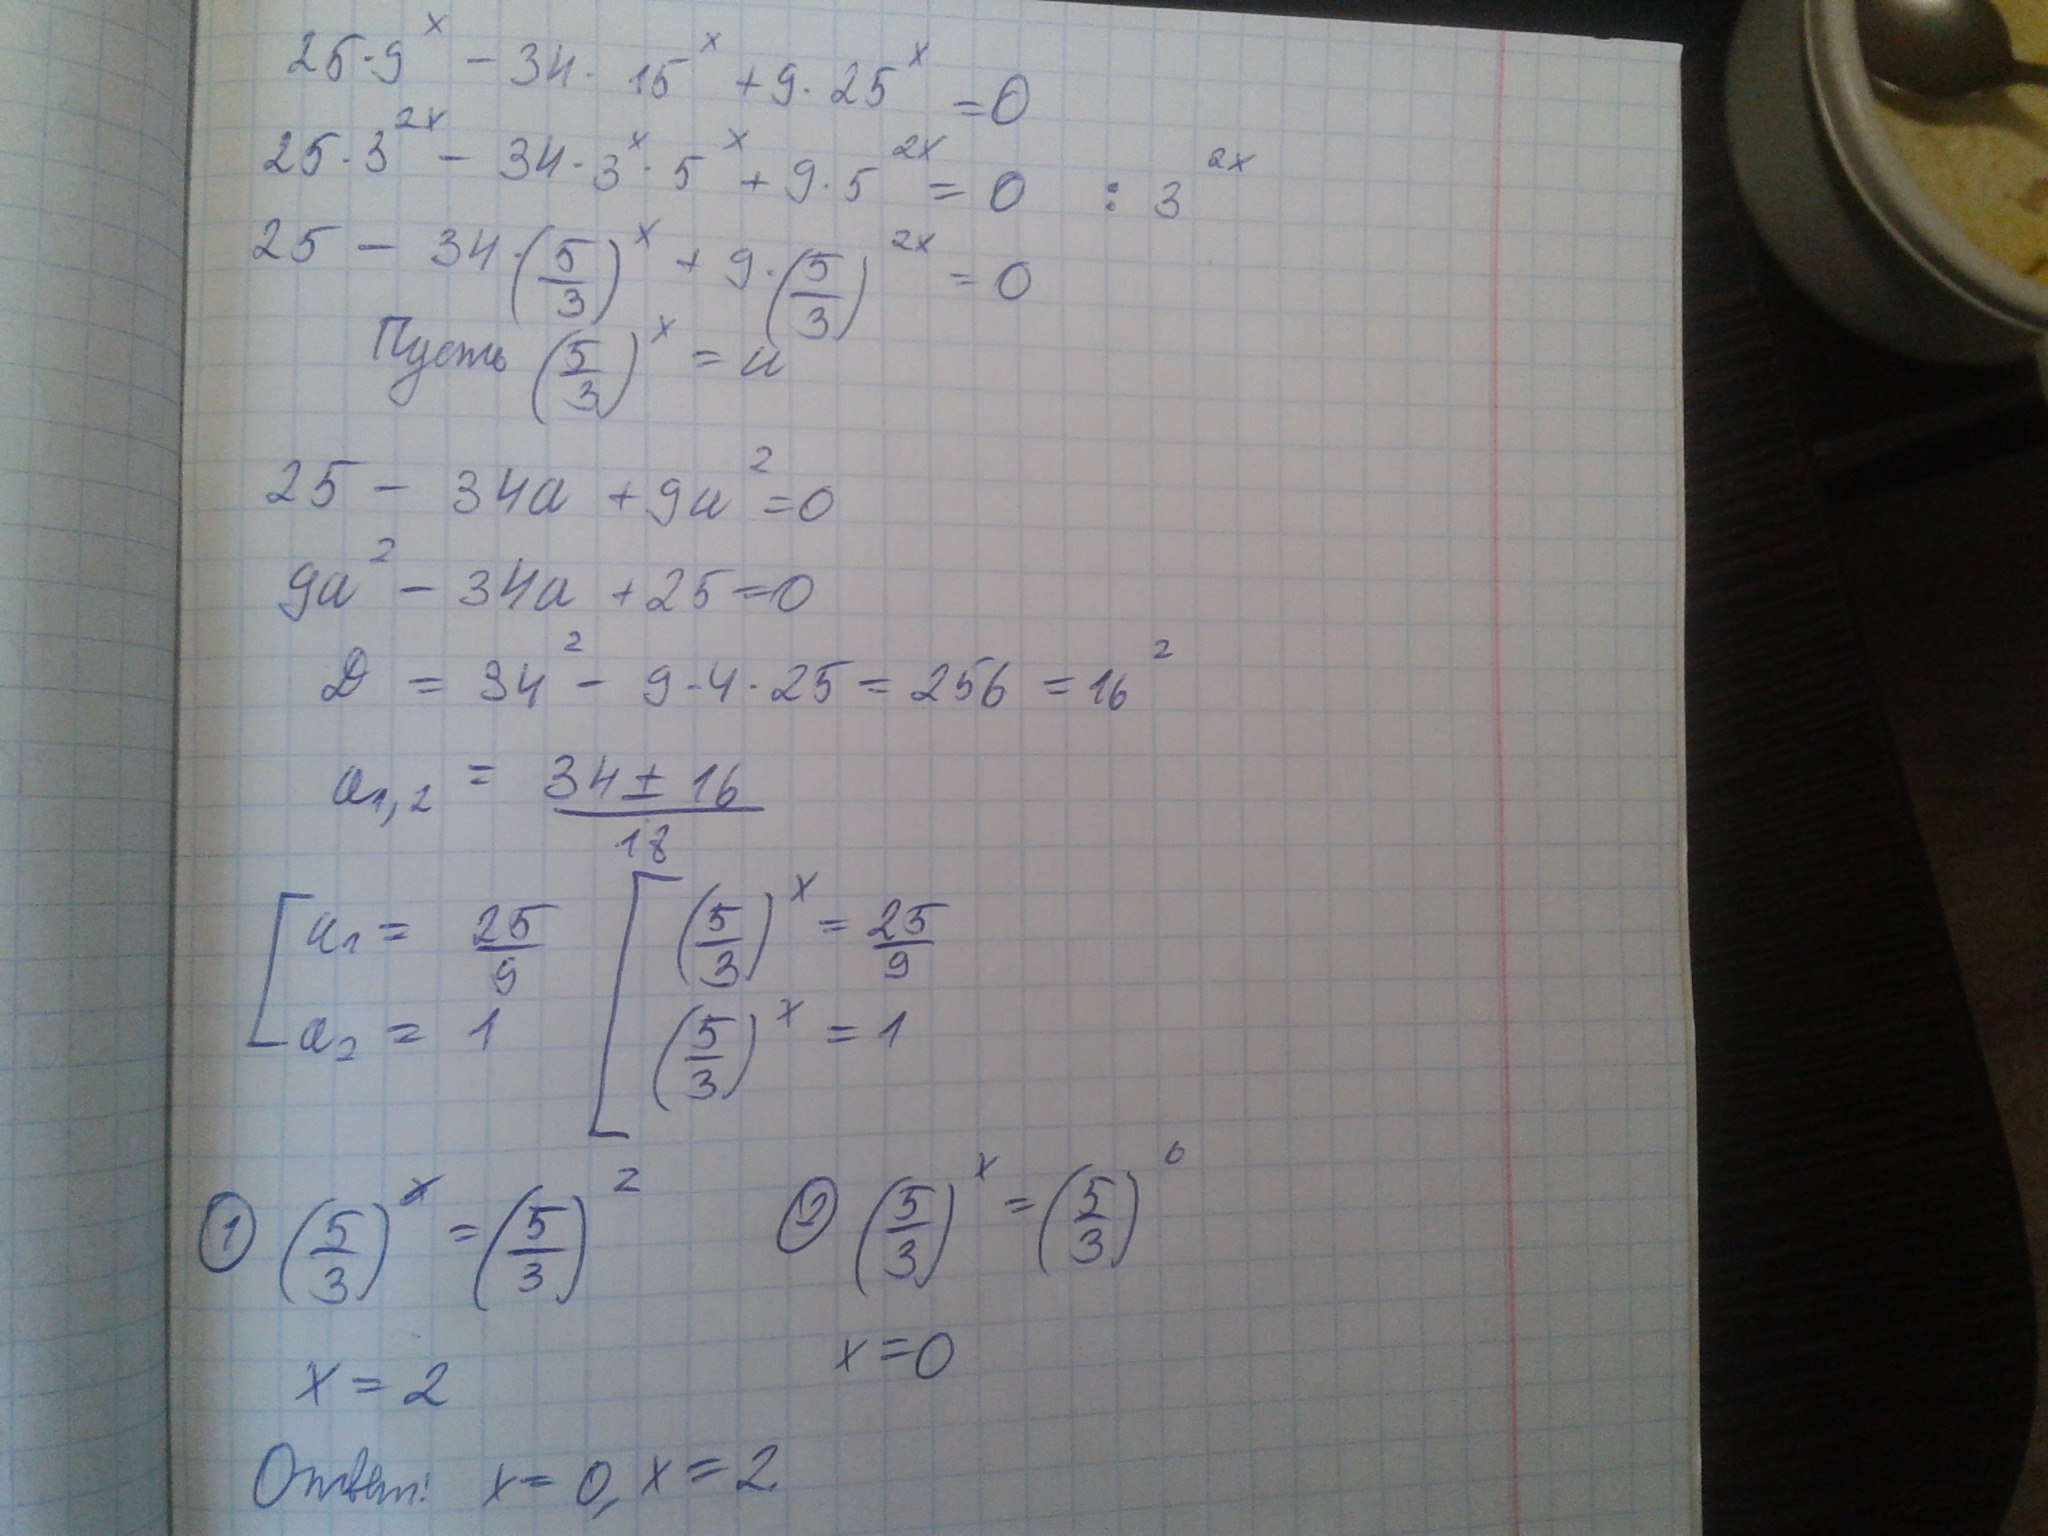 25·9^x − 34· 15^x + 9·25^x = 0
25·3^2x − 34·3^x·5^x + 9·5^2x = 0 : 3^2x
25 − 34·(5/3)^x + 9·(5/3)^2x = 0
Пусть (5/3)^x = a
25 − 34a + 9a^2 = 0
9a^2 − 34a + 25 = 0
D = 34^2 − 9·4·25 = 256 = 16^2
a1,2 = (34 ± 16)/18
[ a1 = 25/9 [ (5/3)^x = 25/9
a2 = 1 (5/3)^x = 1
① (5/3)^x = (5/3)^2 ② (5/3)^x = (5/3)^0
x = 2 x = 0
Ответ: x = 0, x = 2.